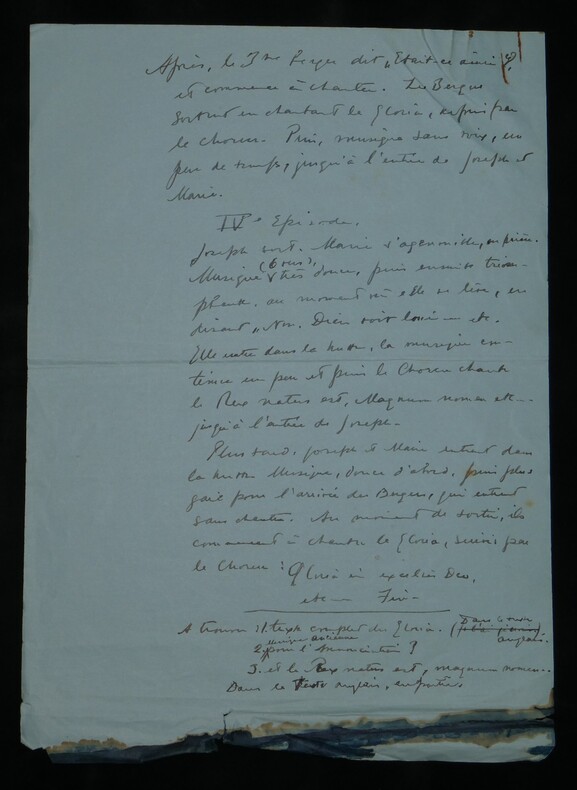 Après, le 3me Berger dit „Etait-ce ainsi?
et commence à chanter. Les Bergers
sortent en chantant le Gloria,
le choeur. Puis, musique sans voix, un
peu de temps, jusqu'à l'entrée de Joseph et
Marie.
IVe Episode.
Joseph sort. Marie s'agenouille, en prière.
Musique (6 vers), très douce, puis ensuite triom-
phante, au moment où elle se lève, en
disant „Non. Dieu soit loué — etc.
Elle entre dans la hutte, la musique con-
tinue un peu et puis le Choeur chante
le Rex natus est, Magnum nomen etc —
jusqu'à l'entrée de Joseph —
Plus tard, Joseph et Marie entrent dans
la hutte. Musique, douce d'abord, puis plus
gaie pour l'arrivée des Bergers, qui entrent
sans chanter. Au moment de sortir, ils
commencent à chanter le Gloria, suivis par
le Choeur: Gloria in excelsis Deo,
etc — Fin —
A trouver: 1. texte complet du Gloria. (Dans
anglais.
musique ancienne
2. pour l'Annonciation?
3. et le Rex natus est, magnum nomen..
Dans le texte anglais,